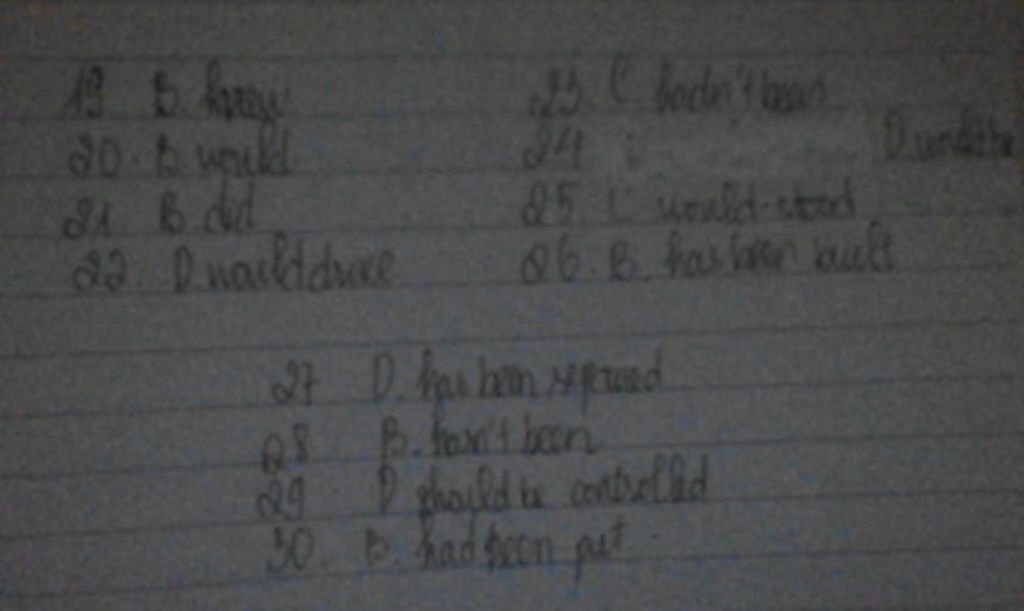 19 B. knew
20. B. would
21. B. did
22. D. would drive
23. C. hadn't been
24 D would be
25 C would stood
26. B. has been built
27 D. has been repaired
28 B. hasn't been
29 D should be controlled
30. B. had been put.